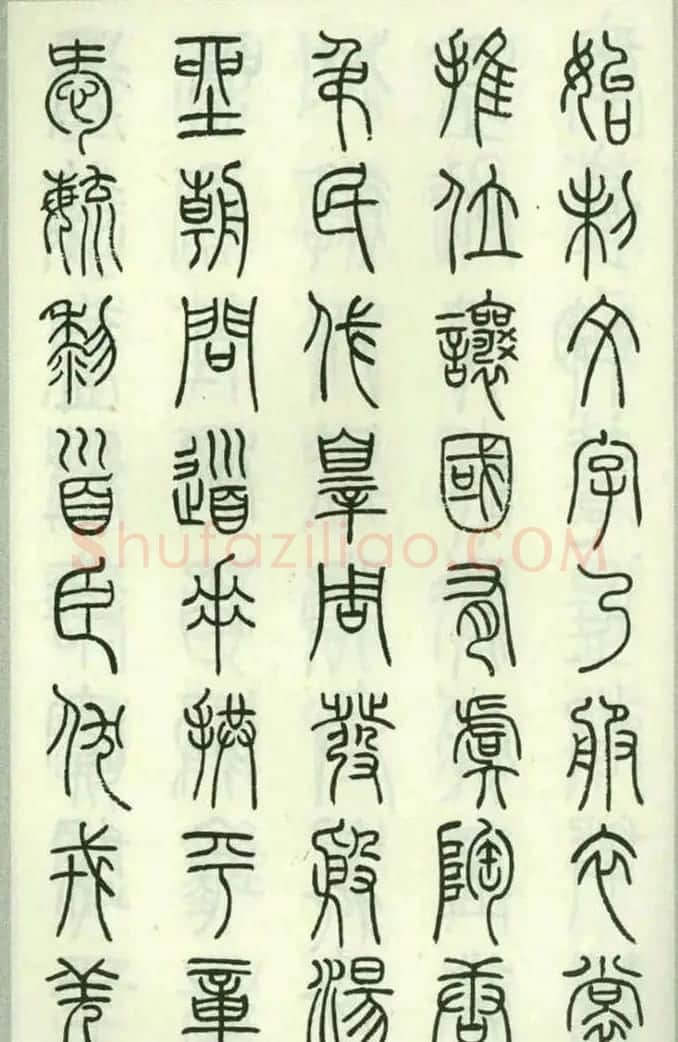 始制文字乃服衣裳
推位讓國有虞陶唐
弔民伐辠周發殷湯
坐朝問道垂拱平章
愛毓黎首臣伏戎羌
Shufaziliao.COM